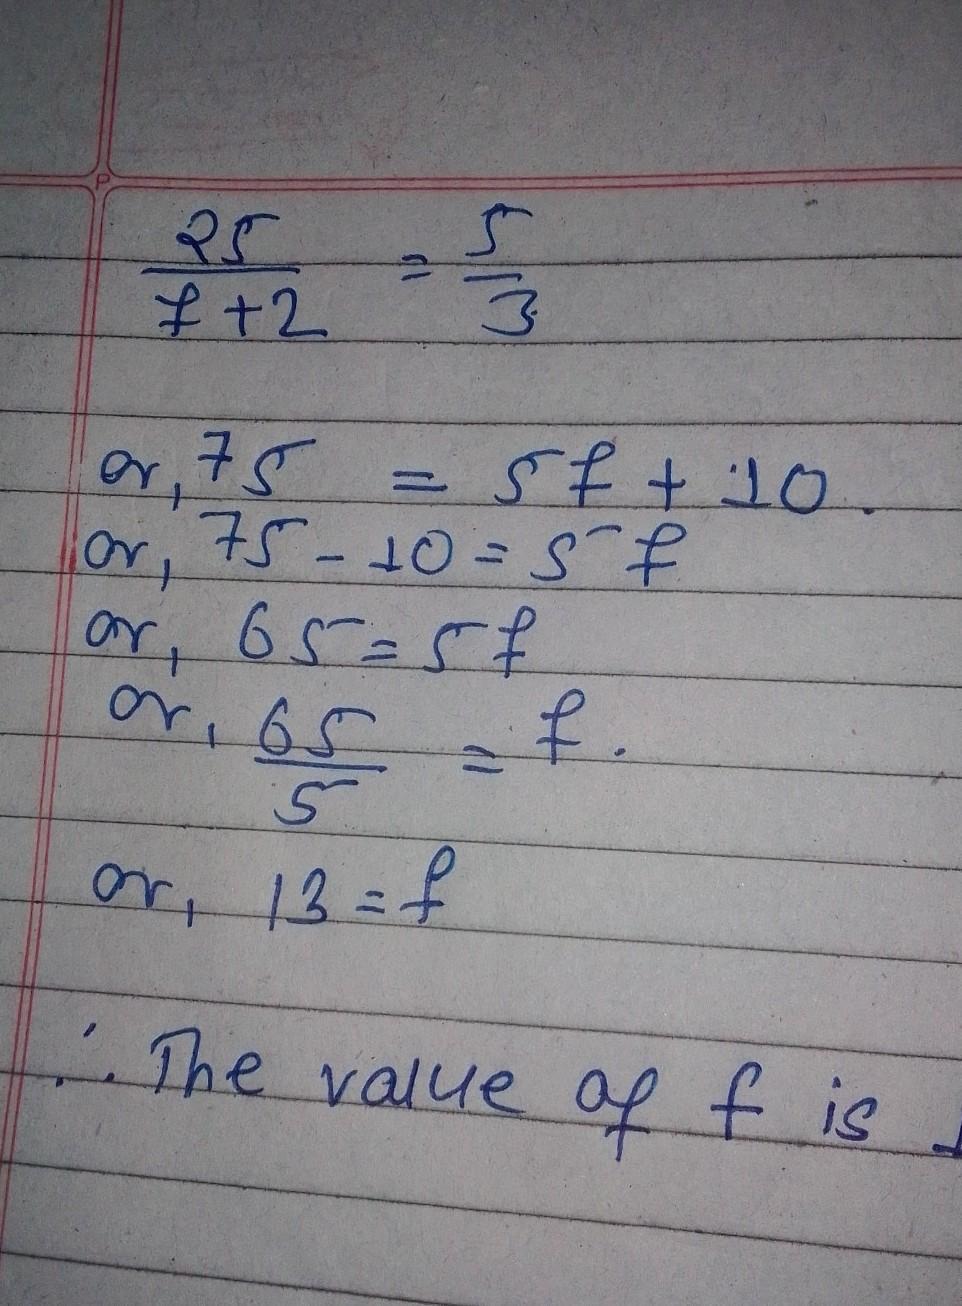 25/f+2 = 5/3
or, 75 = 5f + 10.
or, 75 - 10 = 5f
or, 65 = 5f
or, 65/5 = f.
or, 13 = f
∴ The value of f is